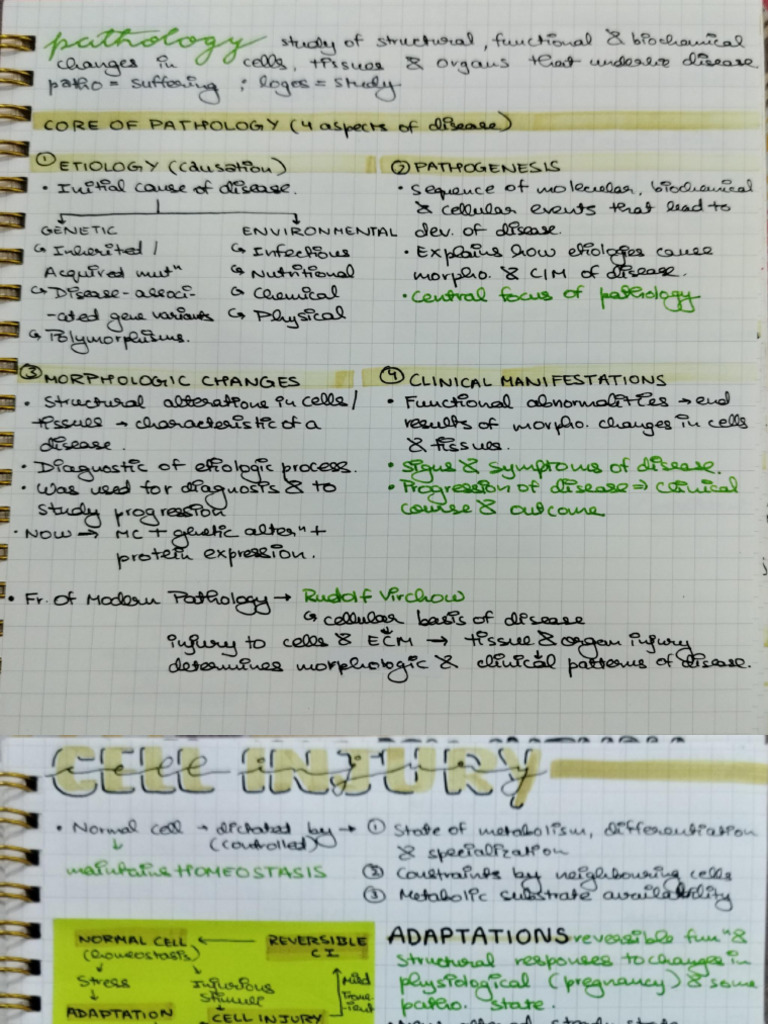 pathology study of structural, functional & biochemical
changes in cells, tissues & organs that underlie disease
patho = suffering ; logos = study
CORE OF PATHOLOGY (4 aspects of disease)
① ETIOLOGY (causation)
• Initial cause of disease.
GENETIC
↳ Inherited /
Acquired mutⁿ
↳ Disease-associ-
-ated gene variants
↳ Polymorphisms.
ENVIRONMENTAL
↳ Infectious
↳ Nutritional
↳ Chemical
↳ Physical
② PATHOGENESIS
• Sequence of molecular, biochemical
& cellular events that lead to
dev. of disease.
• Explains how etiologies cause
morpho. & C/M of disease.
• Central focus of pathology
③ MORPHOLOGIC CHANGES
• Structural alterations in cells/
tissues → characteristic of a
disease.
• Diagnostic of etiologic process.
• Was used for diagnosis & to
study progression
• NOW → MC + genetic alterⁿ +
protein expression.
④ CLINICAL MANIFESTATIONS
• Functional abnormalities → end
results of morpho. changes in cells
& tissues.
• Signs & symptoms of disease.
• Progression of disease ⇒ clinical
course & outcome
• Fr. of Modern Pathology → Rudolf Virchow
↳ cellular basis of disease
injury to cells & ECM → tissue & organ injury
determines morphologic & clinical patterns of disease.
CELL INJURY
cell injury
• Normal cell → dictated by →
(controlled)
↓
maintains HOMEOSTASIS
① State of metabolism, differentiation
& specialization
② Constraints by neighbouring cells
③ Metabolic substrate availability
NORMAL CELL ← REVERSIBLE
(homeostasis) C.I.
Stress
Injurious
Stimuli
Mild
Transient
ADAPTATION
CELL INJURY
ADAPTATIONS reversible funⁿ &
structural responses to changes in
physiological (pregnancy) & some
patho. state.